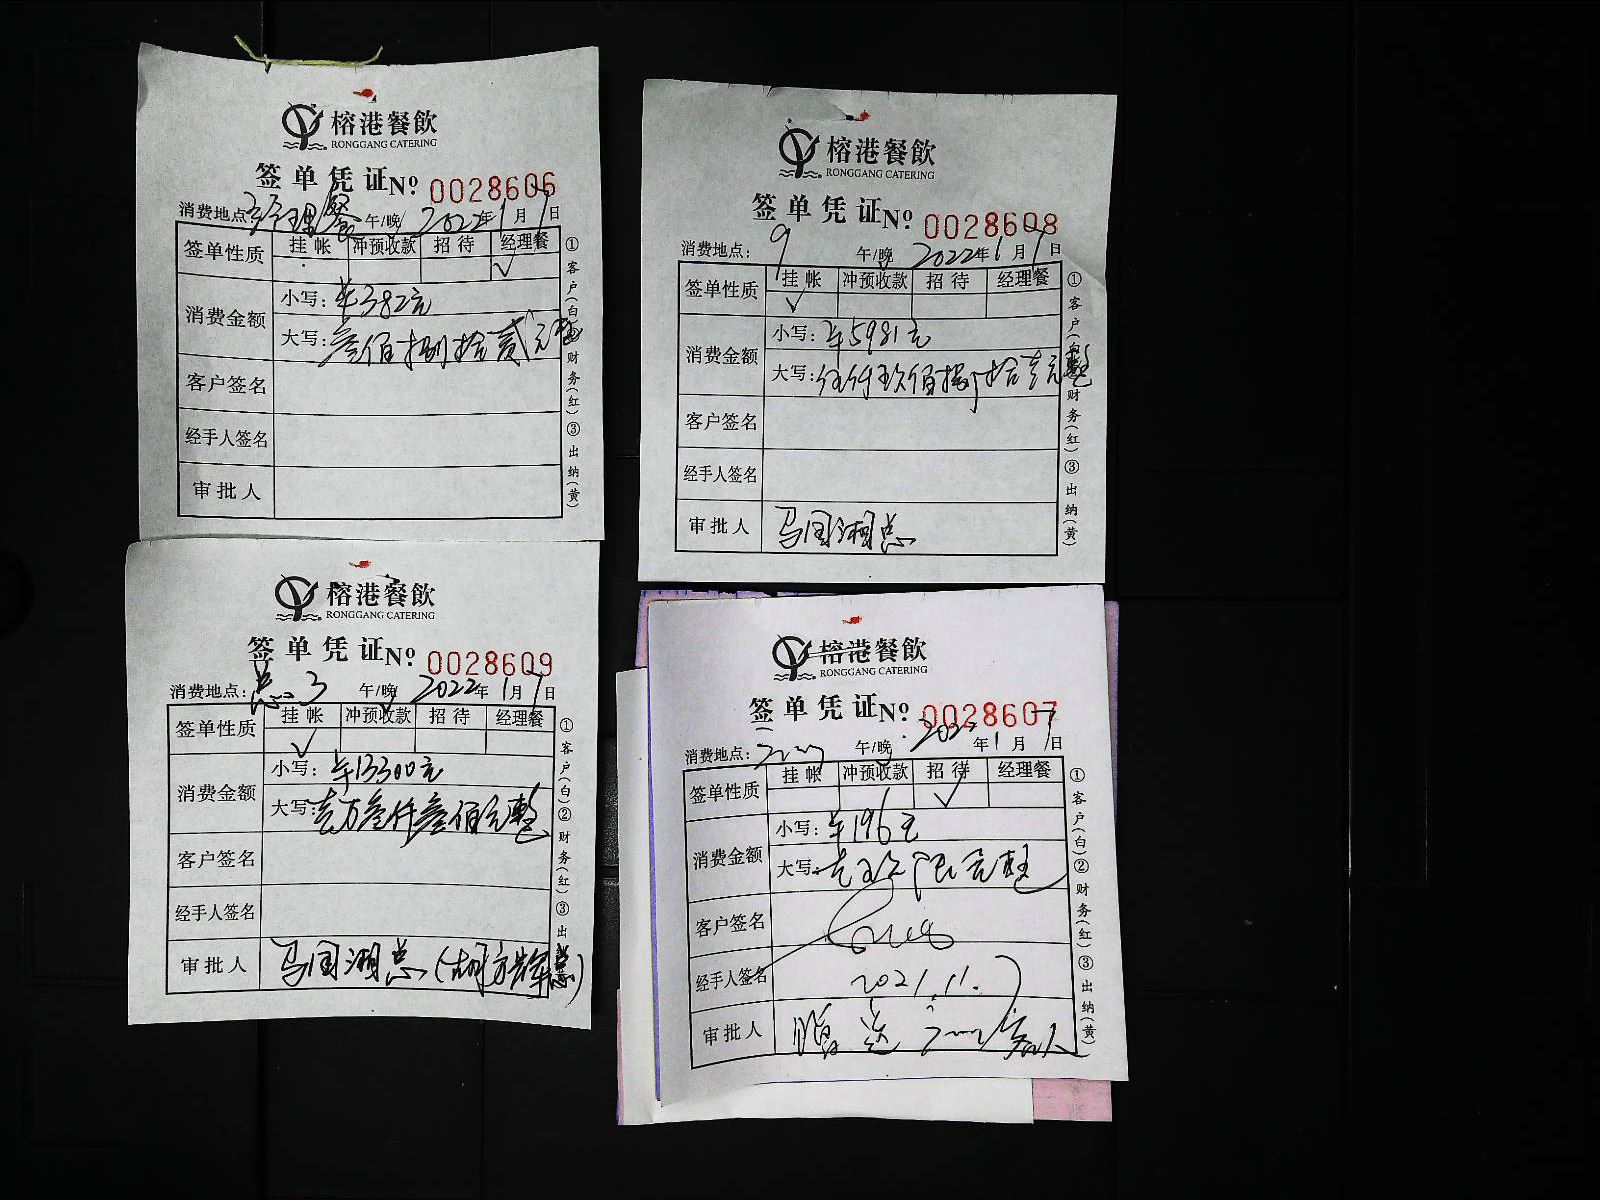 榕港餐飲
RONGGANG CATERING
签单凭证 Nº 0028606
消费地点 经理餐 午/晚 2022年1月7日
签单性质 挂帐 冲预收款 招待 经理餐
✓
消费金额 小写: ¥382元
大写: 叁佰捌拾贰元整
客户签名
经手人签名
审批人
①客户(白)②财务(红)③出纳(黄)
榕港餐飲
RONGGANG CATERING
签单凭证 Nº 0028608
消费地点: 9 午/晚 2022年1月7日
签单性质 挂帐 冲预收款 招待 经理餐
✓
消费金额 小写: ¥5981元
大写: 伍仟玖佰捌拾壹元整
客户签名
经手人签名
审批人 马国湘总
①客户(白)②财务(红)③出纳(黄)
榕港餐飲
RONGGANG CATERING
签单凭证 Nº 0028609
消费地点: 总3 午/晚 2022年1月7日
签单性质 挂帐 冲预收款 招待 经理餐
✓
消费金额 小写: ¥13300元
大写: 壹万叁仟叁佰元整
客户签名
经手人签名
审批人 马国湘总(胡方辉总)
①客户(白)②财务(红)③出纳(黄)
榕港餐飲
RONGGANG CATERING
签单凭证 Nº 0028607
消费地点: 午/晚 2022年1月7日
签单性质 挂帐 冲预收款 招待 经理餐
✓
消费金额 小写: ¥196元
大写: 元整
客户签名
经手人签名 2021.11.7
审批人 赠送 客人
①客户(白)②财务(红)③出纳(黄)